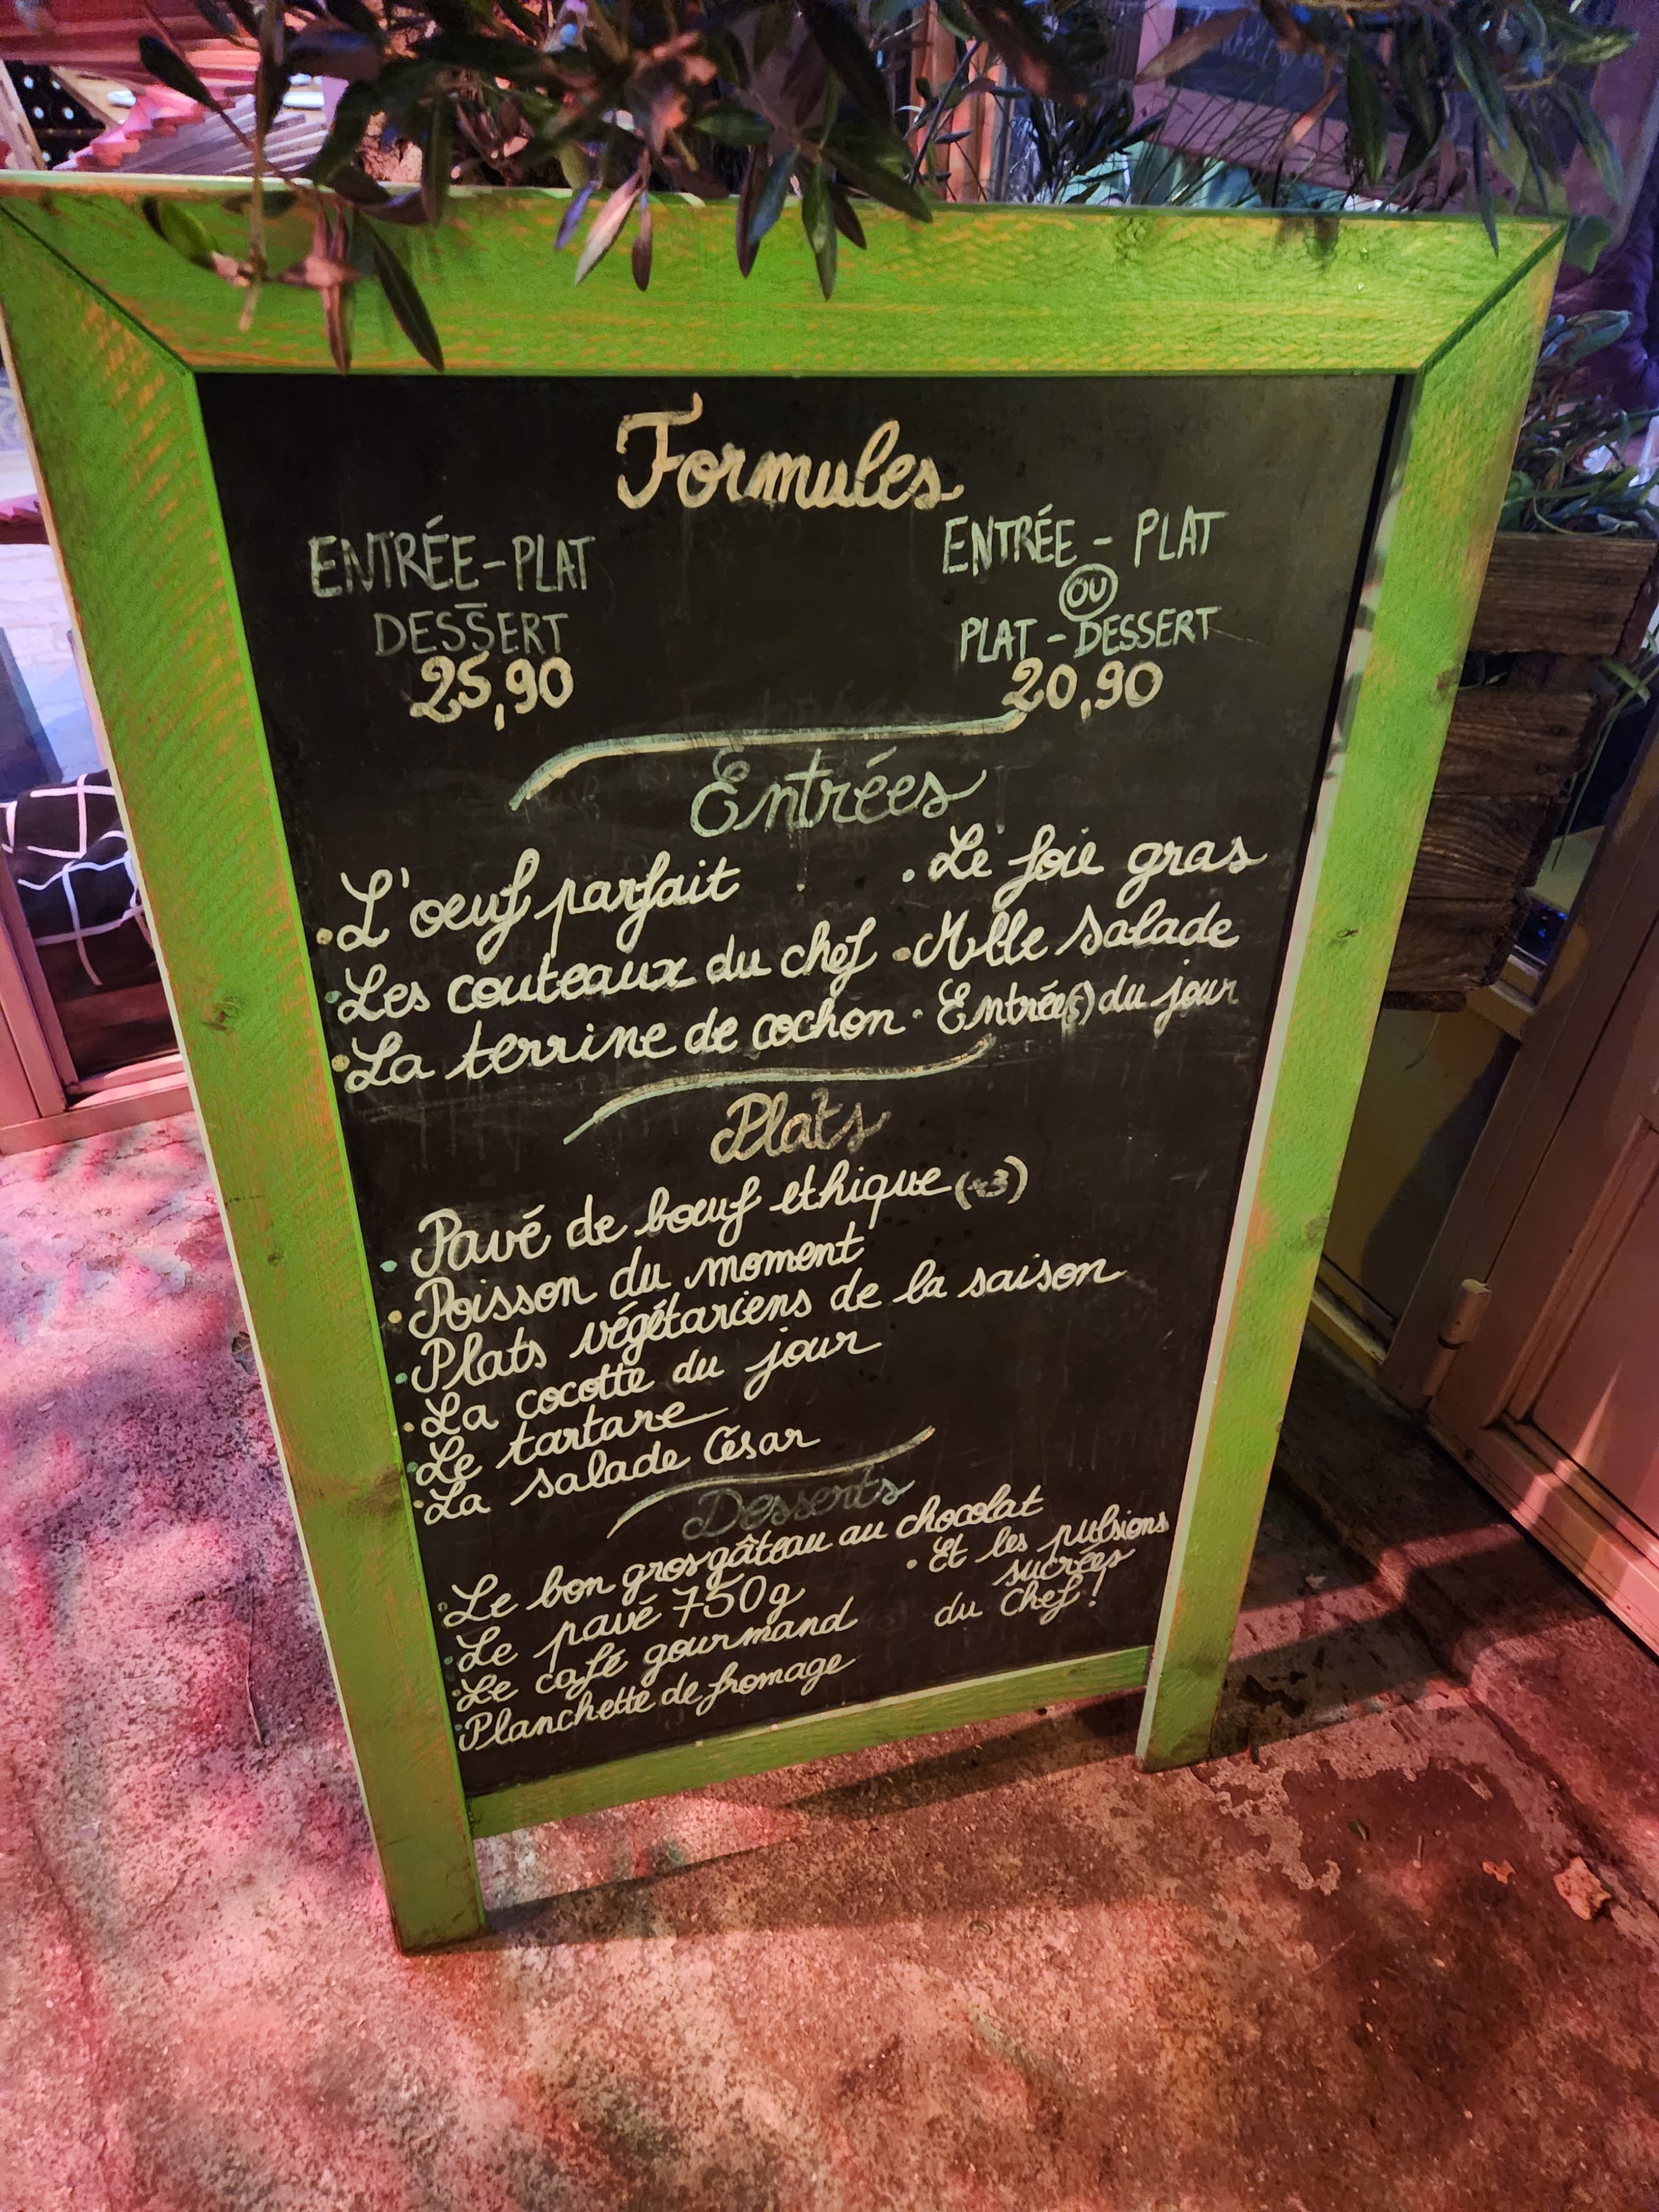 Formules
ENTRÉE-PLAT
DESSERT
25,90
ENTRÉE - PLAT
OU
PLAT - DESSERT
20,90
Entrées
. L'oeuf parfait
. Le foie gras
. Les couteaux du chef
. Mlle salade
. La terrine de cochon
. Entrée(s) du jour
Plats
. Pavé de boeuf ethique (+3)
. Poisson du moment
. Plats végétariens de la saison
. La cocotte du jour
. Le tartare
. La salade César
Desserts
. Le bon gros gâteau au chocolat
. Le pavé 750g
. Le café gourmand
. Planchette de fromage
. Et les pulsions
sucrées
du Chef !